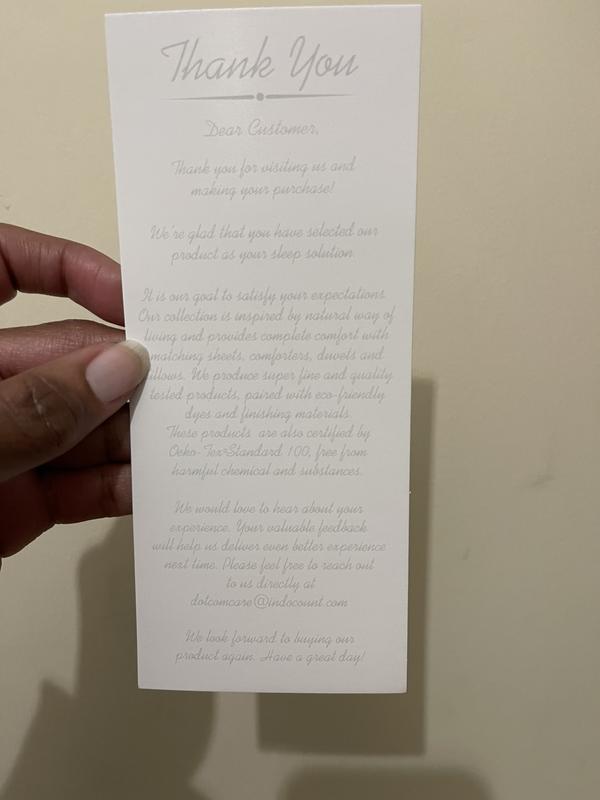 Thank You
Dear Customer,
Thank you for visiting us and
making your purchase!
We're glad that you have selected our
product as your sleep solution.
It is our goal to satisfy your expectations.
Our collection is inspired by natural way of
living and provides complete comfort with
matching sheets, comforters, duvets and
illows. We produce super fine and quality
tested products, paired with eco-friendly
dyes and finishing materials.
These products are also certified by
Oeko-Tex®Standard 100, free from
harmful chemical and substances.
We would love to hear about your
experience. Your valuable feedback
will help us deliver even better experience
next time. Please feel free to reach out
to us directly at
dotcomcare@indocount.com
We look forward to buying our
product again. Have a great day!